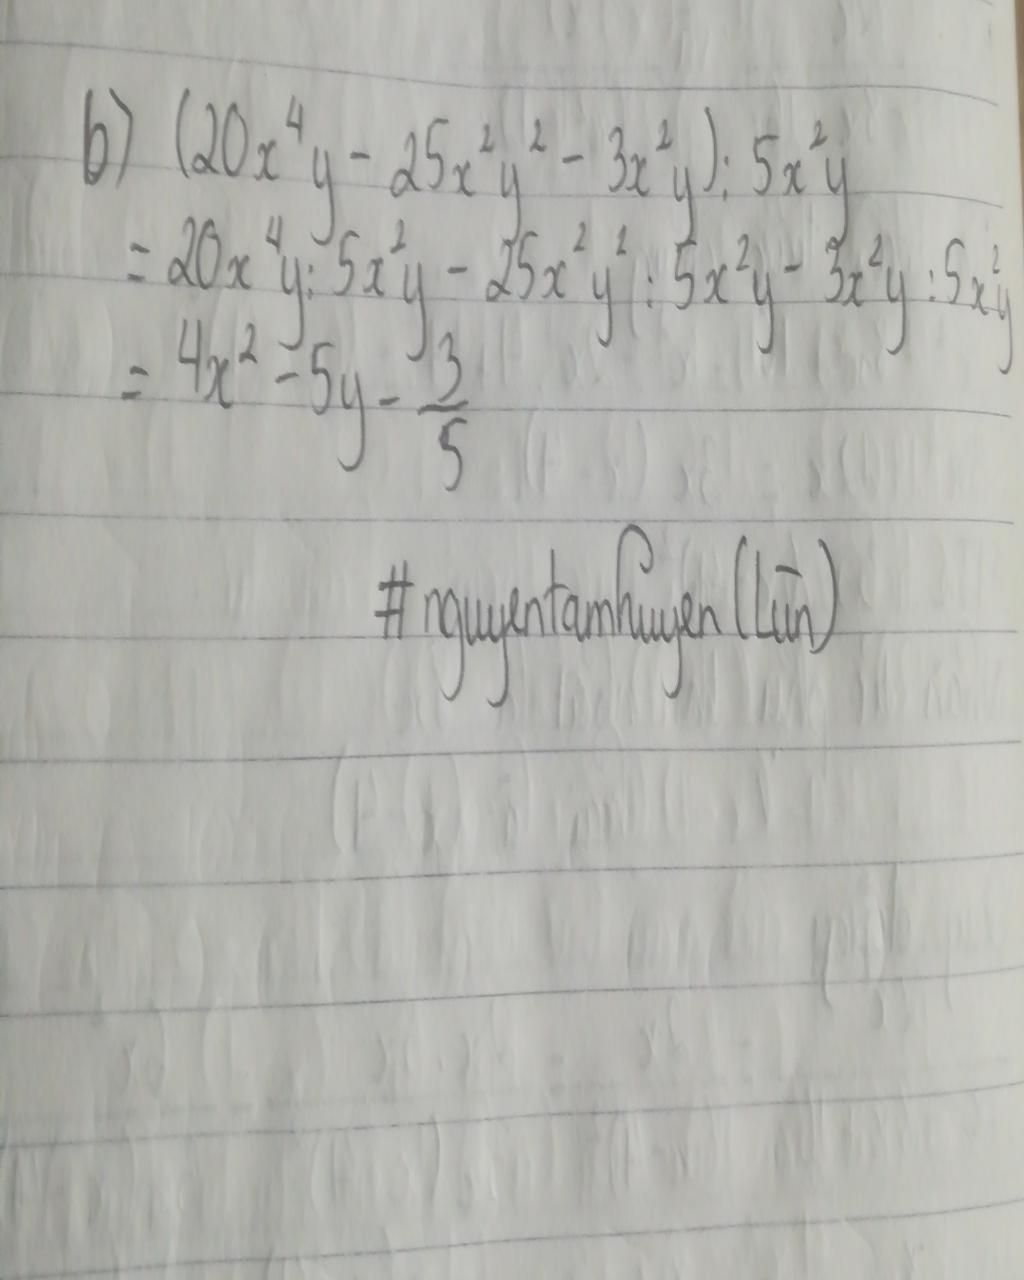 b) (20x⁴y - 25x²y² - 3x²y) : 5x²y
= 20x⁴y : 5x²y - 25x²y² : 5x²y - 3x²y : 5x²y
= 4x² - 5y - 3/5
#nguyentamhuyen (Lūn)